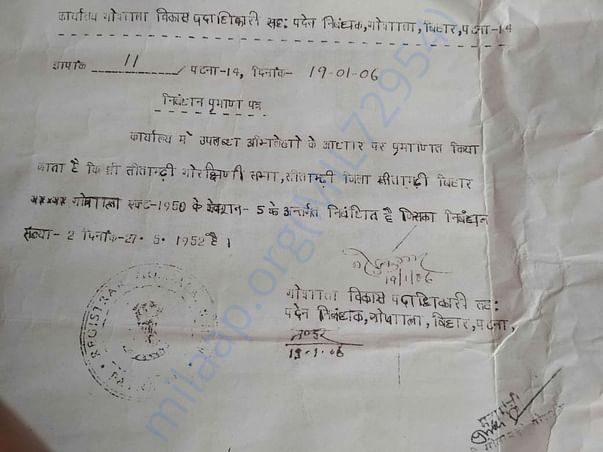 कार्यालय गोशाला विकास पदाधिकारी सह: पदेन निबंधक, गोशाला, बिहार, पटना-14
ज्ञापांक 11 / पटना-14, दिनांक- 19-01-06
निबंधन प्रमाण पत्र
कार्यालय में उपलब्ध अभिलेखो के आधार पर प्रमाणित किया
जाता है कि श्री सीतामढ़ी गोरक्षिणी सभा, सीतामढ़ी जिला सीतामढ़ी बिहार
××××× गोशाला एक्ट-1950 के सेक्शन- 5 के अन्तर्गत निबंधित है जिसका निबंधन
संख्या- 2 दिनांक-27-5-1952 है ।
19/1/06
गोशाला विकास पदाधिकारी सह:
पदेन निबंधक, गोशाला, बिहार, पटना,
19-1-06
REGISTRAR
milaap.org(MIL72954)